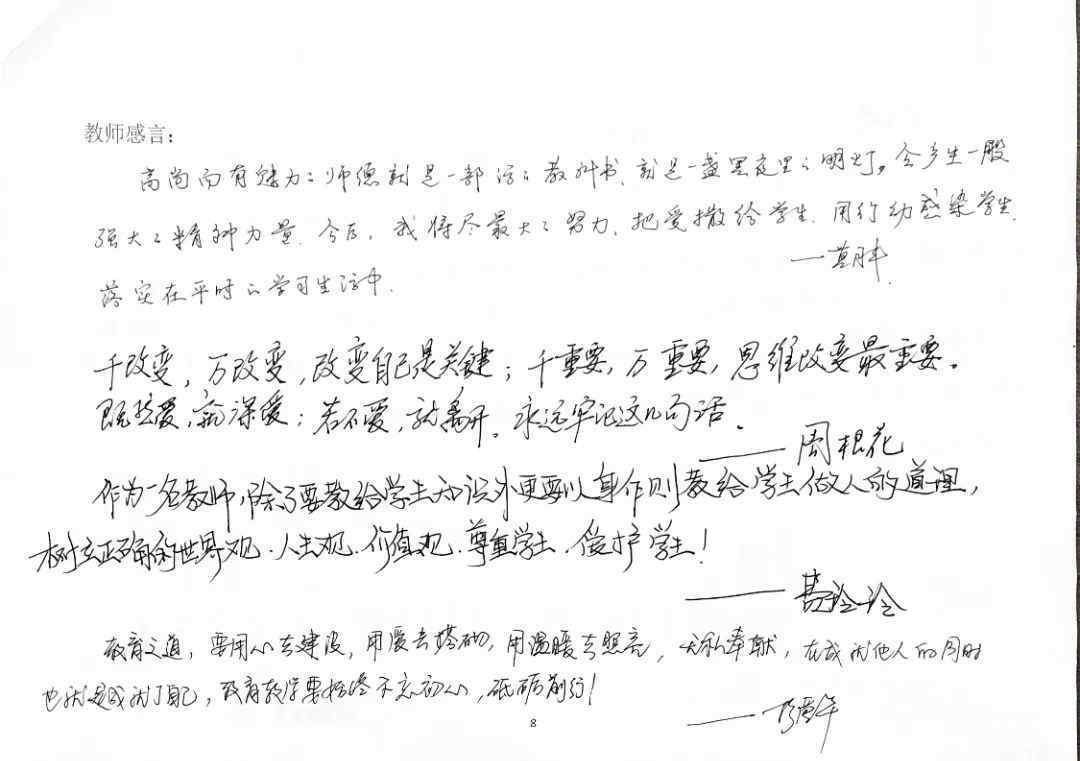 教师感言：
高尚而有魅力的师德就是一部活的教科书，就是一盏黑夜里的明灯，会产生一股
强大的精神力量．今后，我将尽最大的努力，把爱撒给学生．用行动感染学生．
落实在平时的学习生活中．
千改变，万改变，改变自己是关键；千重要，万重要，思维改变最重要。
既然爱，就深爱；若不爱，就离开。永远牢记这几句话。
——周根花
作为一名教师，除了要教给学生知识外更要以身作则教给学生做人的道理，
树立正确的世界观．人生观．价值观．尊重学生．爱护学生！
——葛玲玲
教育之道，要用心去建设，用爱去搭砌，用温暖去照亮，无私奉献，在成就他人的同时
也就是成就了自己，教育教学要始终不忘初心，砥砺前行！
8